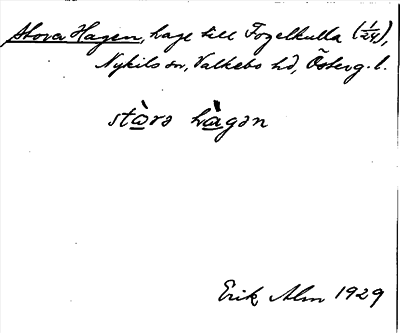 Stora Hagen, hage till Fogelkulla (1/24),
Nykils sn, Valkebo hd, Österg. l.
stò̲rə hà̲gən
Erik Alm 1929